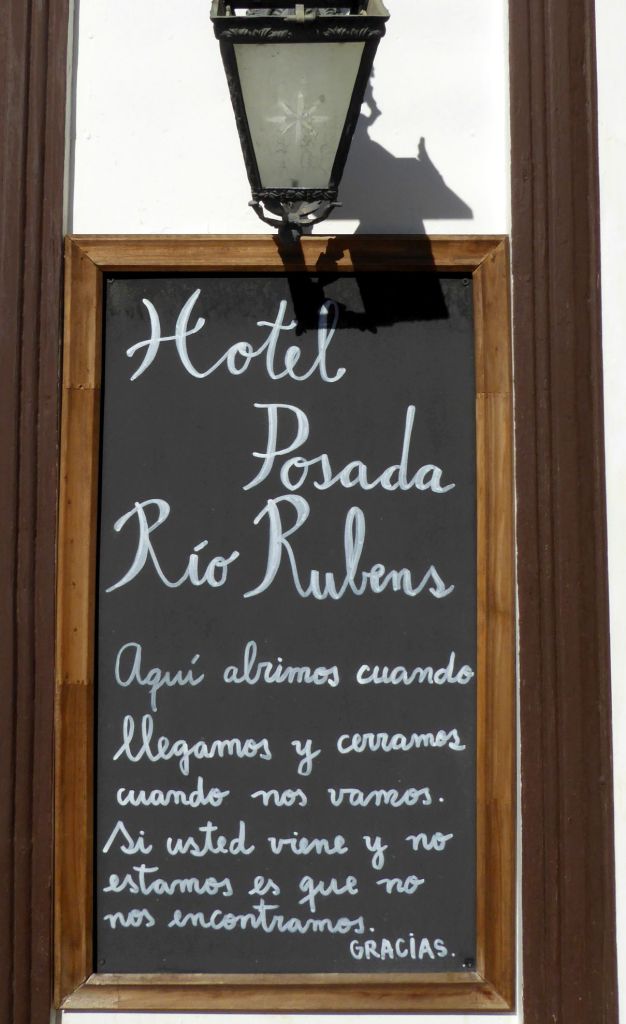 Hotel
Posada
Río Rubens
Aquí abrimos cuando
llegamos y cerramos
cuando nos vamos.
Si usted viene y no
estamos es que no
nos encontramos.
GRACIAS.